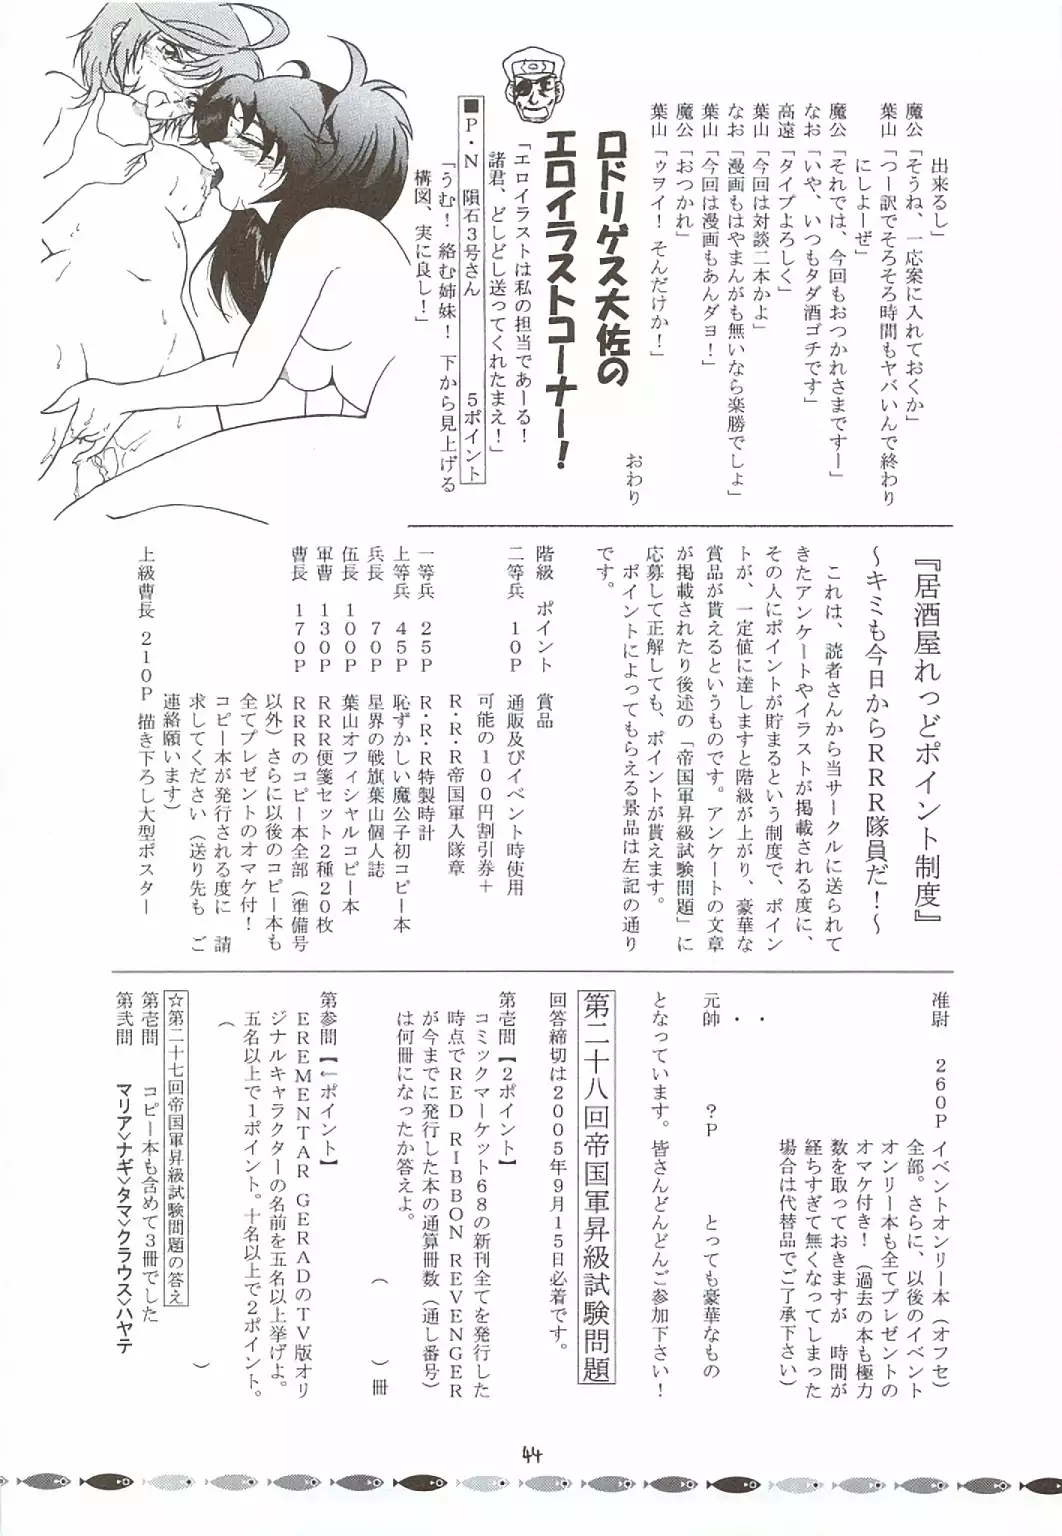 出来るし」
魔公「そうね、一応案に入れておくか」
葉山「つー訳でそろそろ時間もヤバいんで終わり
にしよーぜ」
魔公「それでは、今回もおつかれさまですー」
なお「いや、いつもタダ酒ゴチです」
高遠「タイプよろしく」
葉山「今回は対談二本かよ」
なお「漫画もはやまんがも無いなら楽勝でしょ」
葉山「今回は漫画もあんダョ！」
魔公「おつかれ」
葉山「ゥヲイ！そんだけか！」
おわり
ロドリゲス大佐の
エロイラストコーナー！
「エロイラストは私の担当であーる！
諸君、どしどし送ってくれたまえ！」
■P・N　隕石3号さん　5ポイント
「うむ！絡む姉妹！下から見上げる
構図、実に良し！」
『居酒屋れっどポイント制度』
～キミも今日からRRR隊員だ！～
これは、読者さんから当サークルに送られて
きたアンケートやイラストが掲載される度に、
その人にポイントが貯まるという制度で、ポイン
トが、一定値に達しますと階級が上がり、豪華な
賞品が貰えるというものです。アンケートの文章
が掲載されたり後述の「帝国軍昇級試験問題」に
応募して正解しても、ポイントが貰えます。
ポイントによってもらえる景品は左記の通り
です。
階級　ポイント　賞品
二等兵　10P　通販及びイベント時使用
可能の100円割引券＋
R・R・R帝国軍入隊章
一等兵　25P　R・R・R特製時計
上等兵　45P　恥ずかしい魔公子初コピー本
兵長　70P　星界の戦旗葉山個人誌
伍長　100P　葉山オフィシャルコピー本
軍曹　130P　RRR便箋セット2種20枚
曹長　170P　RRRのコピー本全部（準備号
以外）さらに以後のコピー本も
全てプレゼントのオマケ付！
コピー本が発行される度に　請
求してください（送り先も　ご
連絡願います）
上級曹長　210P　描き下ろし大型ポスター
准尉　260P　イベントオンリー本（オフセ）
全部。さらに、以後のイベント
オンリー本も全てプレゼントの
オマケ付き！（過去の本も極力
数を取っておきますが　時間が
経ちすぎて無くなってしまった
場合は代替品でご了承下さい）
・
・
元帥　？P　とっても豪華なもの
となっています。皆さんどんどんご参加下さい！
第二十八回帝国軍昇級試験問題
回答締切は2005年9月15日必着です。
第壱問【2ポイント】
コミックマーケット68の新刊全てを発行した
時点でRED RIBBON REVENGER
が今までに発行した本の通算冊数（通し番号）
は何冊になったか答えよ。
（　　）冊
第参問【←ポイント】
EREMENTAR GERADのTV版オリ
ジナルキャラクターの名前を五名以上挙げよ。
五名以上で1ポイント。十名以上で2ポイント。
（　　）
☆第二十七回帝国軍昇級試験問題の答え
第壱問　コピー本も含めて3冊でした
第弐問　マリア>ナギ>タマ>クラウス>ハヤテ
44